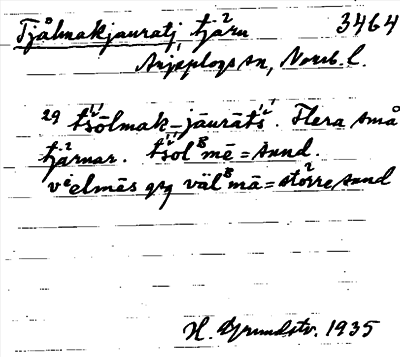 Tjålmakjauratj, tjärn 3464
Arjeplogs sn, Norrb. l.
29 tsōlmak-jāurāts. Flera små
tjärnar. tsolᴮmē = sund.
velmēs och välᴮmā = större sund
H. Grundstr. 1935